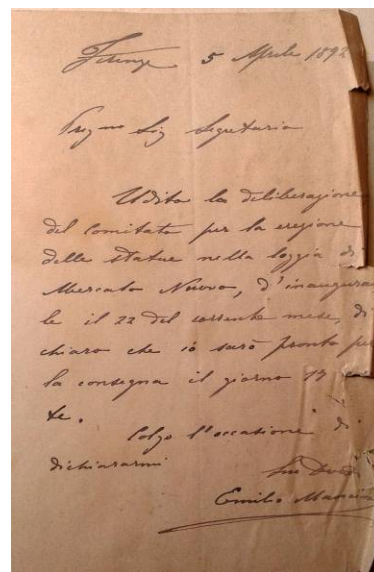 Firenze 5 Aprile 1892
Preg mo Sig Segretario
Udita la deliberazione
del Comitato per la erezione
delle statue nella loggia di
Mercato Nuovo, d'inaugurar
le il 22 del corrente mese, di
chiaro che io sarò pronto per
la consegna il giorno 17 cor
te.
Colgo l'occasione di
dichiararmi
Suo
Emilio